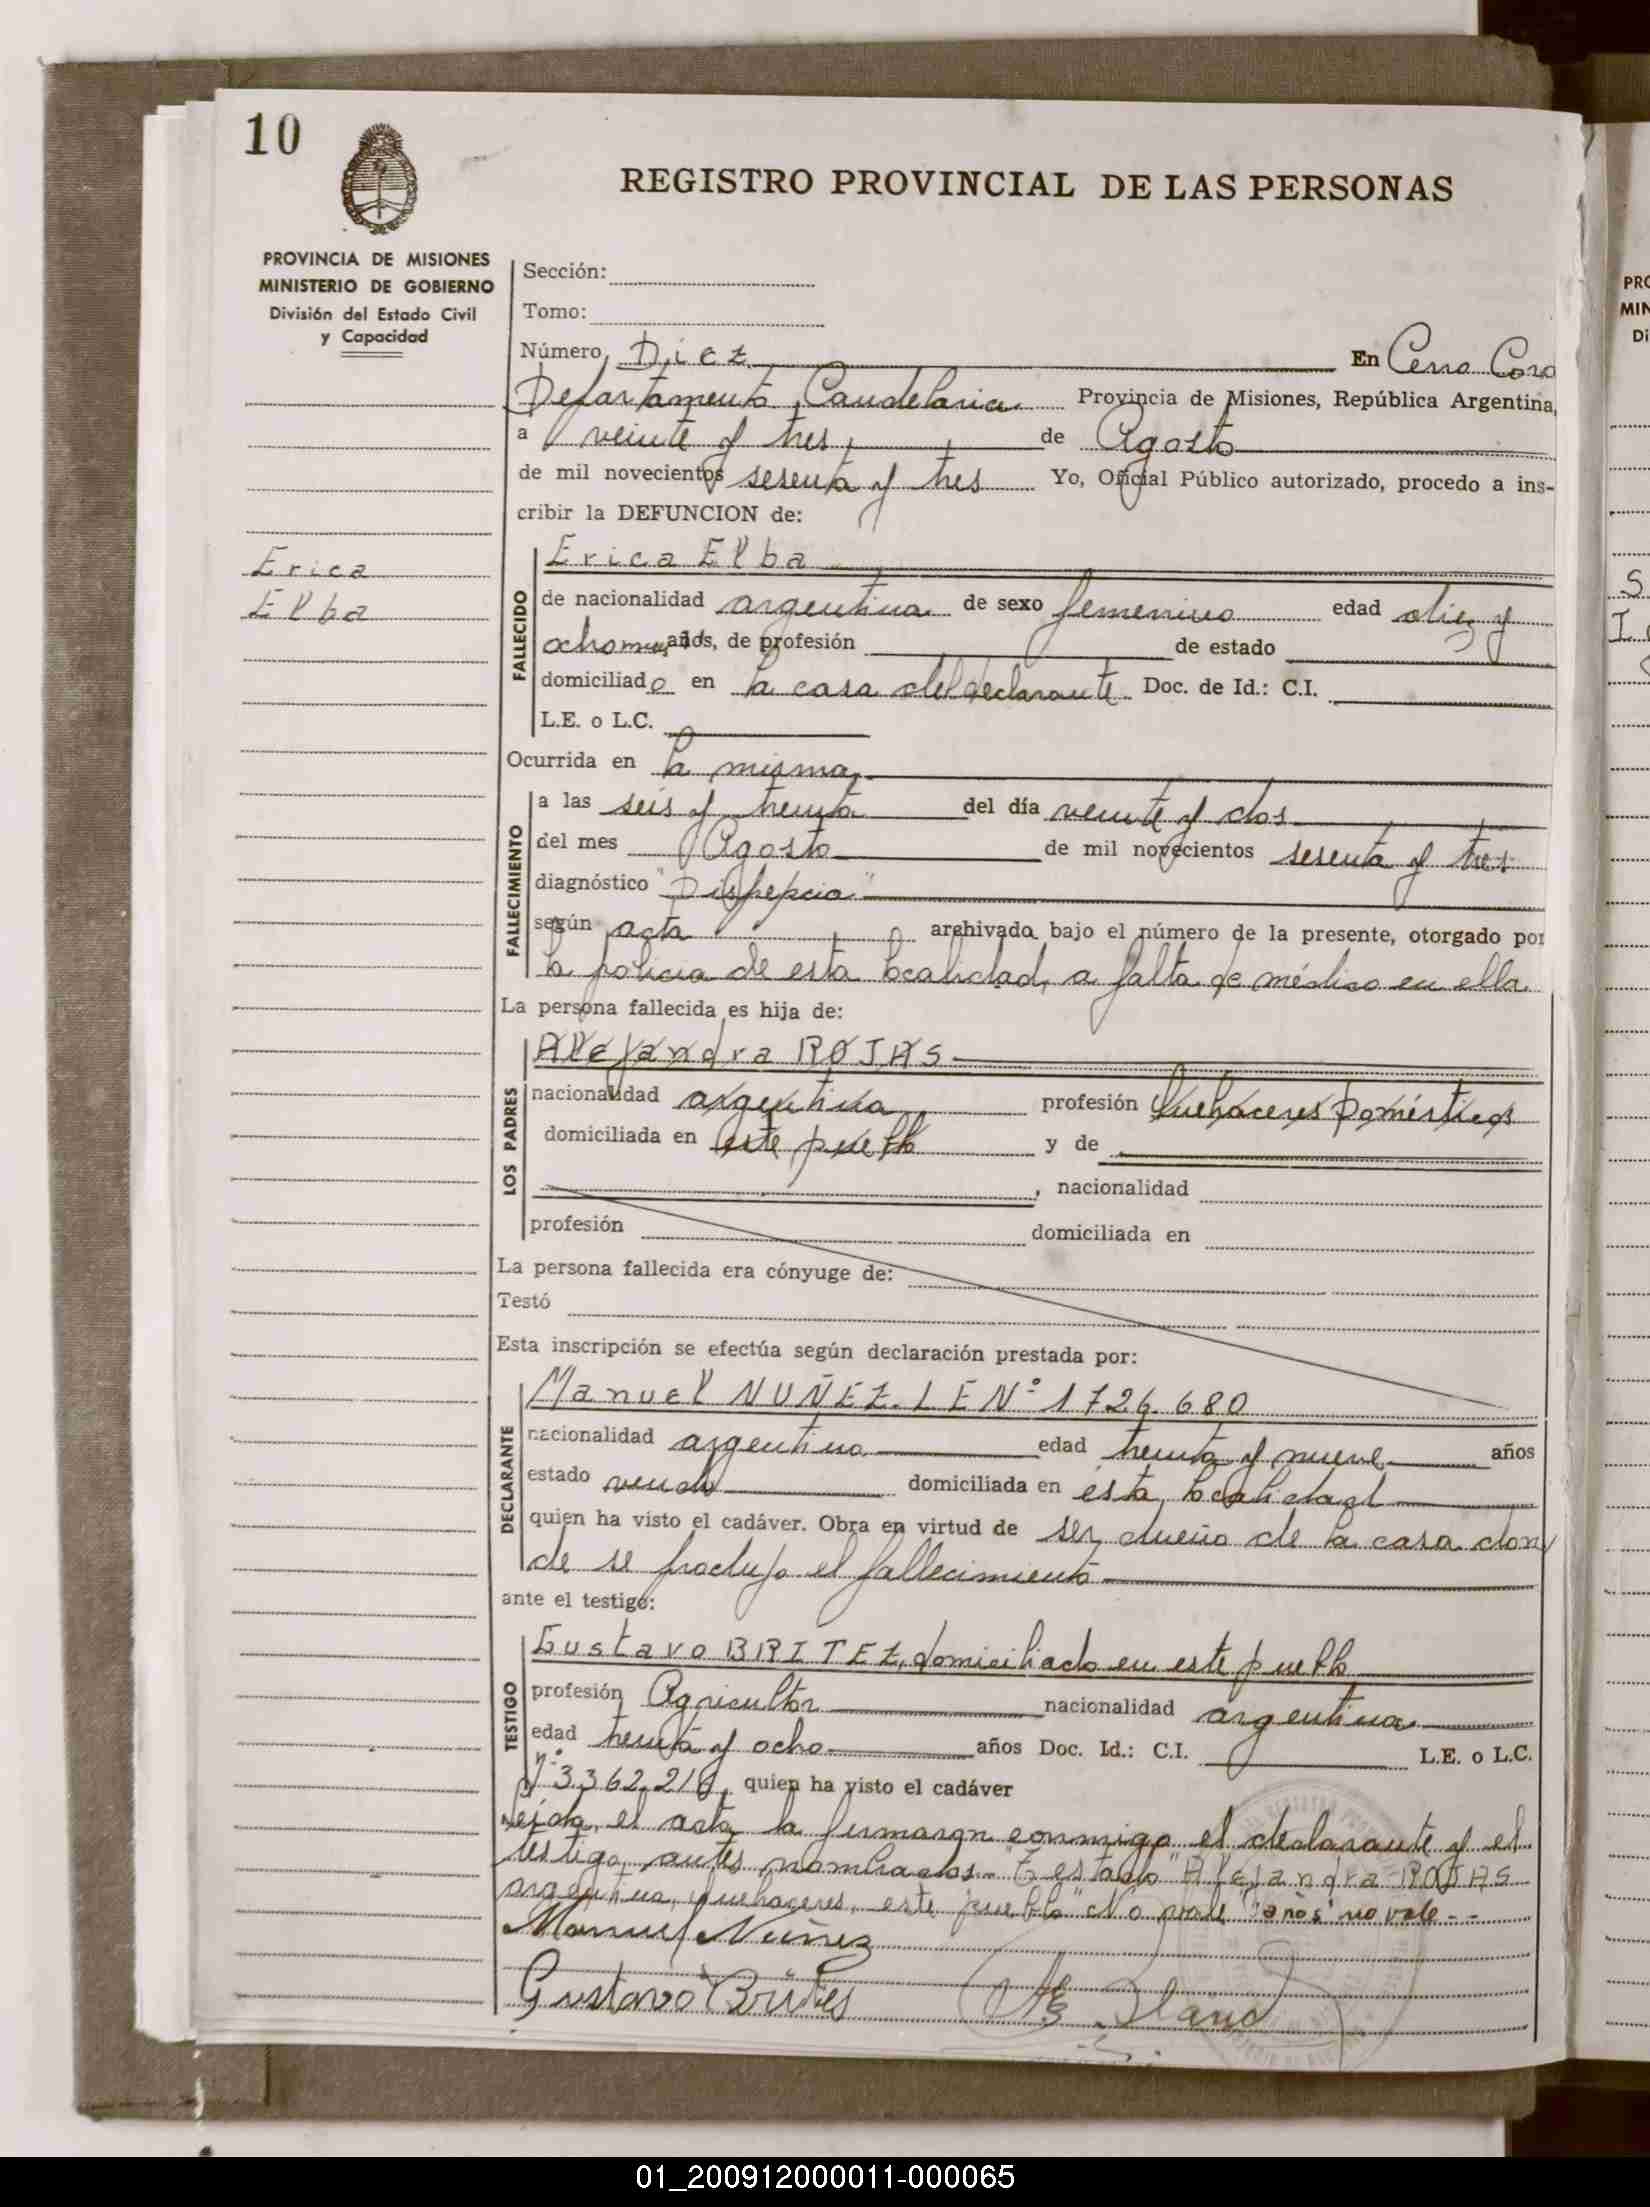 10
REGISTRO PROVINCIAL DE LAS PERSONAS
PROVINCIA DE MISIONES
MINISTERIO DE GOBIERNO
División del Estado Civil
y Capacidad
Sección:
Tomo:
Número Diez En Cerro Corá
Departamento Candelaria Provincia de Misiones, República Argentina,
a veinte y tres de Agosto
de mil novecientos sesenta y tres Yo, Oficial Público autorizado, procedo a ins-
cribir la DEFUNCION de:
Erica
Elba
FALLECIDO
Erica Elba
de nacionalidad argentina de sexo femenino edad diez y
ocho meses años, de profesión de estado
domiciliado en la casa del declarante Doc. de Id.: C.I.
L.E. o L.C.
Ocurrida en la misma
FALLECIMIENTO
a las seis y treinta del día veinte y dos
del mes Agosto de mil novecientos sesenta y tres
diagnóstico "Dispepcia"
según acta archivada bajo el número de la presente, otorgado por
la policia de esta localidad, a falta de médico en ella
La persona fallecida es hija de:
LOS PADRES
Alejandra ROJAS
nacionalidad argentina profesión Quehaceres Domésticos
domiciliada en este pueblo y de
, nacionalidad
profesión domiciliada en
La persona fallecida era cónyuge de:
Testó
Esta inscripción se efectúa según declaración prestada por:
DECLARANTE
Manuel NUÑEZ. L E Nº 1726.680
nacionalidad argentina edad treinta y nueve años
estado viudo domiciliada en ésta localidad
quien ha visto el cadáver. Obra en virtud de ser dueño de la casa don
de se produjo el fallecimiento
ante el testigo:
TESTIGO
Gustavo BRITEZ, domiciliado en este pueblo
profesión Agricultor nacionalidad argentina
edad treinta y ocho años Doc. Id.: C.I. L.E. o L.C.
Nº 3362.216, quien ha visto el cadáver
Leída el acta la firmaron conmigo el declarante y el
testigo antes nombrados. Testado "Alejandra ROJAS
argentina, Quehaceres, este pueblo" No vale "años" no vale--
Manuel Núñez
Gustavo Britez
PRO
MIN
Di
01_200912000011-000065